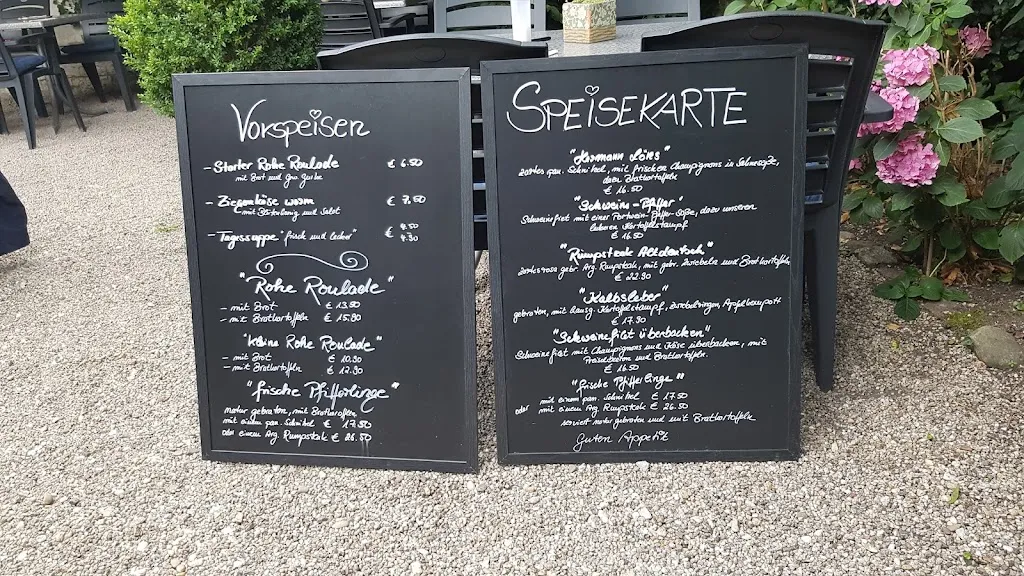 Vorspeisen
- Starter Rohe Roulade € 6.50
mit Brot und Gew. Gurke
- Ziegenkäse warm € 7,50
mit und Salat
- Tagessuppe "frisch und lecker" € 4.50
4.30
"Rohe Roulade"
- mit Brot € 13.50
- mit Bratkartoffeln € 15.90
"kleine Rohe Roulade"
- mit Brot € 10.50
- mit Bratkartoffeln € 12.90
"frische Pfifferlinge"
natur gebraten, mit Bratkartoffeln
mit einem pan. Schnitzel € 17.50
oder einem Arg. Rumpsteak € 26.50
SPEISEKARTE
"Hermann Löns"
zartes pan. Schnitzel, mit frischen Champignons in Sahnesoße,
dazu Bratkartoffeln
€ 16.50
"Schweine-Pfeffer"
Schweinefilet mit einer Portwein-Pfeffer-Soße, dazu unseren
leckeren Kartoffelstampf
€ 16.50
"Rumpsteak Altdeutsch"
zartes rosa gebr. Arg. Rumpsteak, mit gebr. Zwiebeln und Bratkartoffeln
€ 22.90
"Kalbsleber"
gebraten, mit Kartoffelstampf, Zwiebelringen, Apfelkompott
€ 17.90
"Schweinefilet überbacken"
Schweinefilet mit Champignons und Käse überbacken, mit
Preiselbeeren und Bratkartoffeln.
€ 16.50
"frische Pfifferlinge"
mit einem pan. Schnitzel € 17.50
oder mit einem Arg. Rumpsteak € 26.50
serviert natur gebraten und mit Bratkartoffeln
Guten Appetit